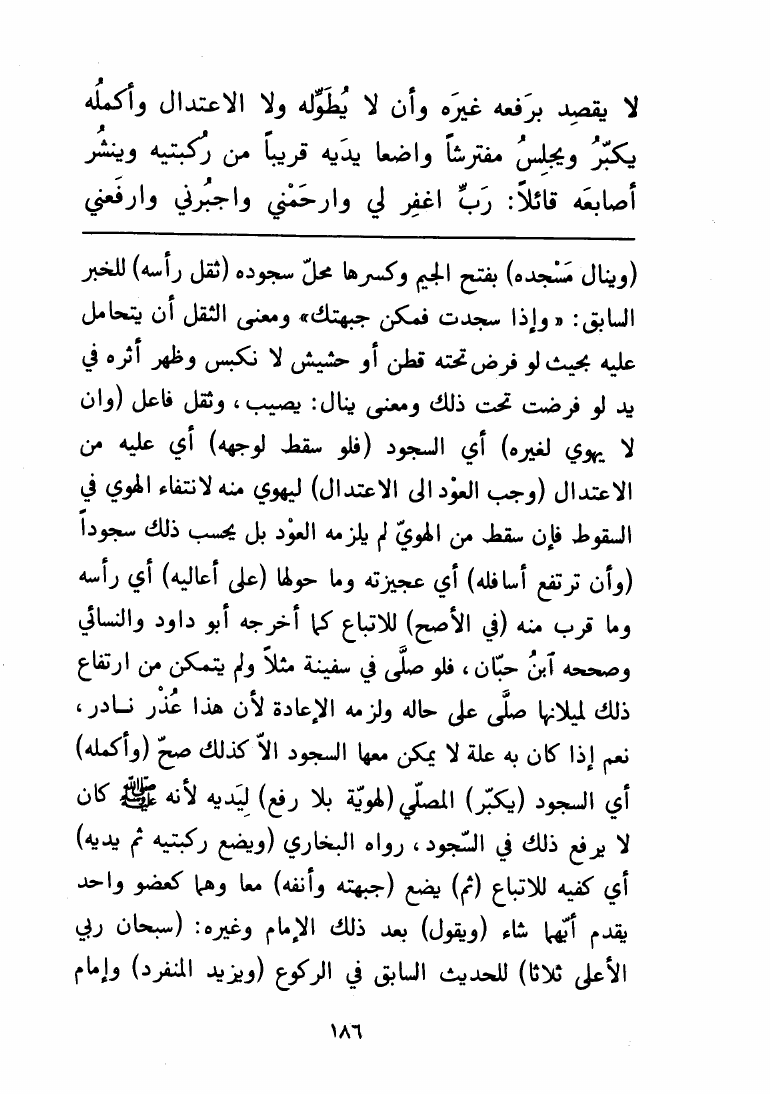 لا يقصِد برَفعه غيرَه وأن لا يُطَوِّله ولا الاعتدال وأكملُه
يكبّرُ ويجلِسُ مفترشاً واضعا يدَيه قريباً من رُكبتيه وينشُر
أصابعَه قائلاً: رَبِّ اغفِر لي وارحَمْني واجبُرني وارفَعني
(وينال مَسْجده) بفتح الجيم وكسرها محلّ سجوده (ثقل رأسه) للخبر
السابق: «وإذا سجدت فمكن جبهتك» ومعنى الثقل أن يتحامل
عليه بحيث لو فرض تحته قطن أو حشيش لا نكبس وظهر أثره في
يد لو فرضت تحت ذلك ومعنى ينال: يصيب، وثقل فاعل (وان
لا يهوي لغيره) أي السجود (فلو سقط لوجهه) أي عليه من
الاعتدال (وجب العوْد الى الاعتدال) ليهوي منه لانتفاء الهوي في
السقوط فإن سقط من الهويّ لم يلزمه العوْد بل يحسب ذلك سجوداً
(وأن ترتفع أسافله) أي عجيزته وما حولها (على أعاليه) أي رأسه
وما قرب منه (في الأصح) للاتباع كما أخرجه أبو داود والنسائي
وصححه آبنُ حبّان، فلو صلَّى في سفينة مثلاً ولم يتمكن من ارتفاع
ذلك لميلانها صلَّى على حاله ولزمه الإعادة لأن هذا عُذْر نادر،
نعم إذا كان به علة لا يمكن معها السجود الاّ كذلك صحّ (وأكمله)
أي السجود (يكبّر) المصلّي (لهويّة بلا رفع) لِيَديه لأنه ﷺ كان
لا يرفع ذلك في السّجود، رواه البخاري (ويضع ركبتيه ثم يديه)
أي كفيه للاتباع (ثم) يضع (جبهته وأنفه) معا وهما كعضو واحد
يقدم أيّهما شاء (ويقول) بعد ذلك الإمام وغيره: (سبحان ربي
الأعلى ثلاثا) للحديث السابق في الركوع (ويزيد المنفرد) وإمام
١٨٦